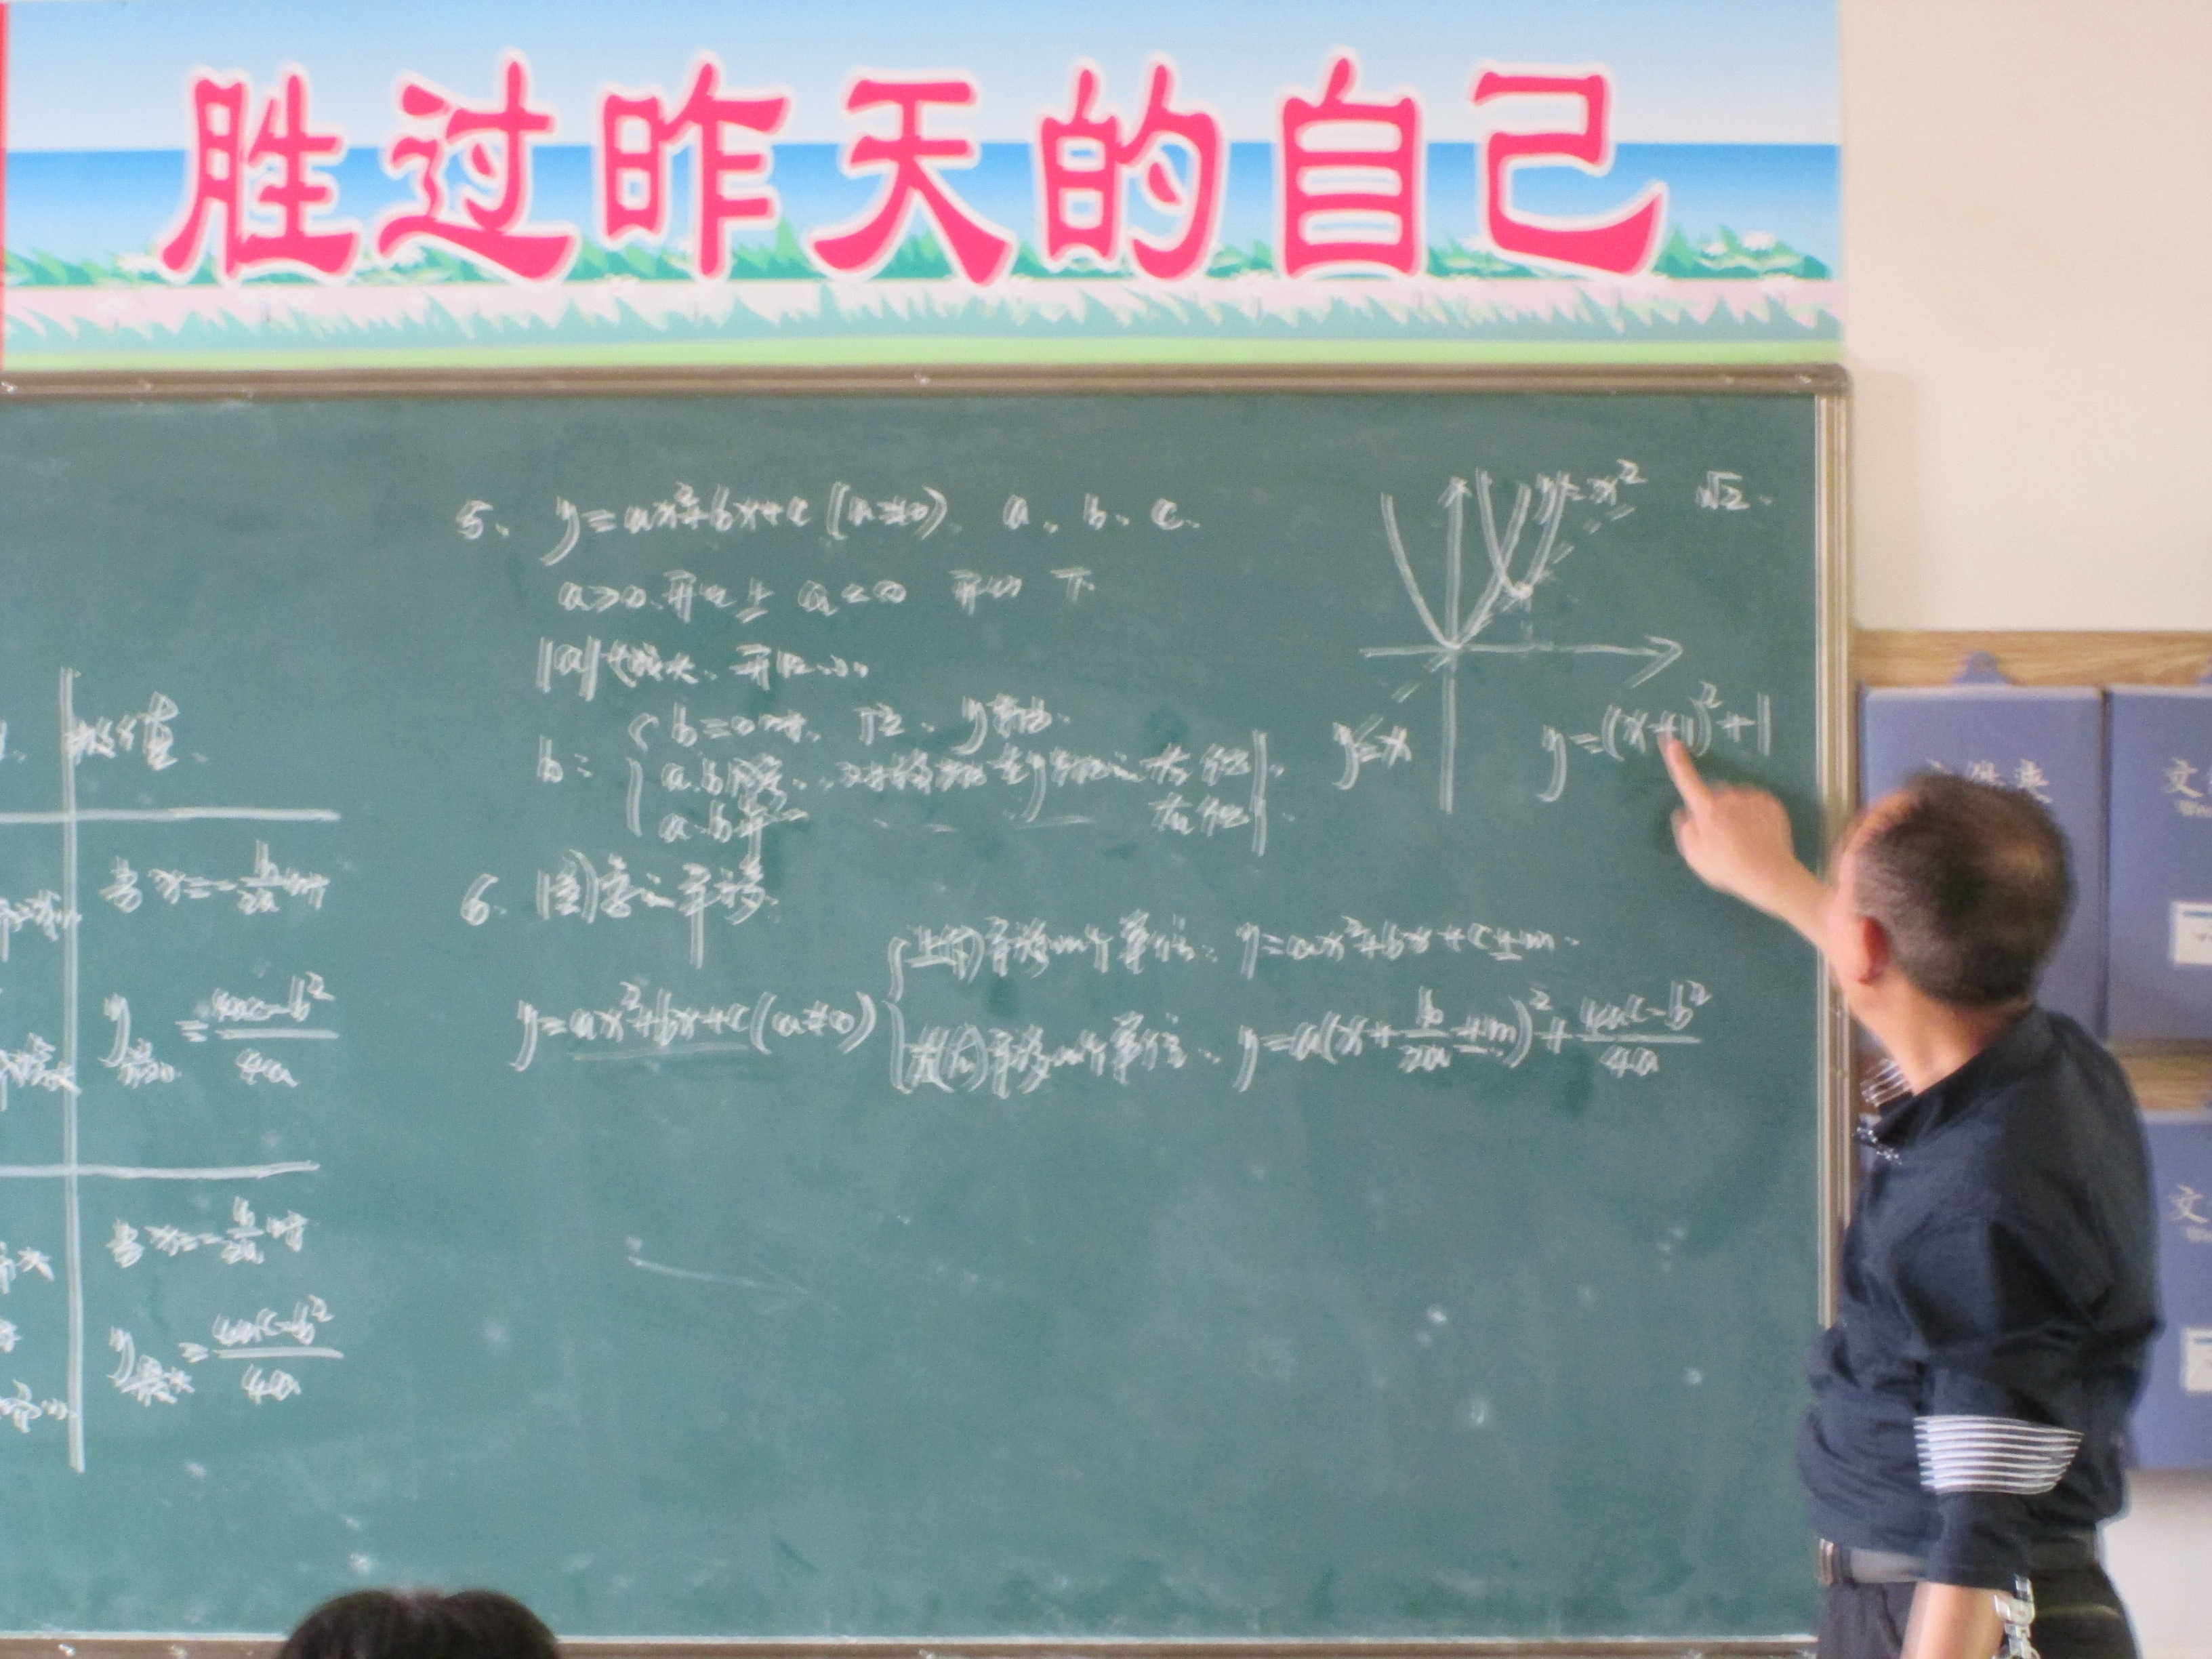 胜过昨天的自己
5、 y=ax²+bx+c (a≠0) a、b、c.
a>0.开口上 a<0 开口 下
|a|越大、开口小
b: b=0时、 y轴
a.b同号..对称轴在y轴之左侧
a.b异 右侧
6、图象之平移
y=ax²+bx+c(a≠0)
上(下)平移m个单位.. y=ax²+bx+c±m.
左(右)平移m个单位.. y=a(x+b/2a±m)²+4ac-b²/4a
y=x² √2.
y=x
y=(x+1)²+1
最值
当x=-b/2a时
y最小=4ac-b²/4a
当x=-b/2a时
y最大=4ac-b²/4a
文件夹
文
文